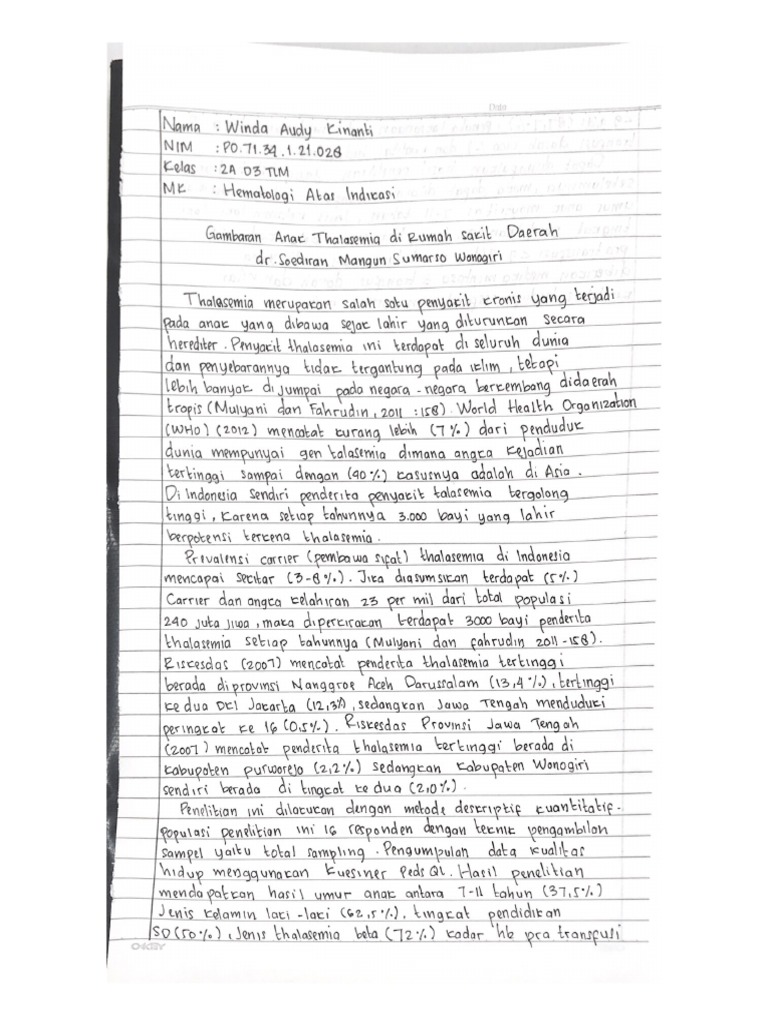 Data
Nama : Winda Audy Kinanti
NIM : PO.71.34.1.21.028
Kelas : 2A D3 TLM
MK : Hematologi Atas Indikasi
Gambaran Anak Thalasemia di Rumah Sakit Daerah
dr. Soediran Mangun Sumarso Wonogiri
Thalasemia merupakan salah satu penyakit kronis yang terjadi
pada anak yang dibawa sejak lahir yang diturunkan secara
herediter. Penyakit thalasemia ini terdapat di seluruh dunia
dan penyebarannya tidak tergantung pada iklim, tetapi
lebih banyak di jumpai pada negara-negara berkembang didaerah
tropis (Mulyani dan Fahrudin, 2011 : 158). World Health Organization
(WHO) (2012) mencatat kurang lebih (7%) dari penduduk
dunia mempunyai gen talasemia dimana angka kejadian
tertinggi sampai dengan (40%) kasusnya adalah di Asia.
Di Indonesia sendiri penderita penyakit talasemia tergolong
tinggi, karena setiap tahunnya 3.000 bayi yang lahir
berpotensi terkena thalasemia.
Prevalensi carrier (pembawa sifat) thalasemia di Indonesia
mencapai sekitar (3-8%). Jika diasumsikan terdapat (5%)
Carrier dan angka kelahiran 23 per mil dari total populasi
240 juta jiwa, maka diperkirakan terdapat 3000 bayi penderita
thalasemia setiap tahunnya (Mulyani dan fahrudin 2011-158).
Riskesdas (2007) mencatat penderita thalasemia tertinggi
berada diprovinsi Nanggroe Aceh Darussalam (13,4%), tertinggi
ke dua DKI Jakarta (12,3%), sedangkan Jawa Tengah menduduki
peringkat ke 16 (0,5%). Riskesdas Provinsi Jawa Tengah
(2007) mencatat penderita thalasemia tertinggi berada di
kabupaten purworejo (2,2%) sedangkan Kabupaten Wonogiri
sendiri berada di tingkat ke dua (2,0%).
Penelitian ini dilakukan dengan metode deskriptif kuantitatif.
populasi penelitian ini 16 responden dengan teknik pengambilan
sampel yaitu total sampling. Pengumpulan data kualitas
hidup menggunakan kuesiner Peds QL. Hasil penelitian
mendapatkan hasil umur anak antara 7-11 tahun (37,5%)
Jenis kelamin laki-laki (62,5%), tingkat pendidikan
SD (50%), Jenis thalasemia beta (72%) kadar hb pra transfusi